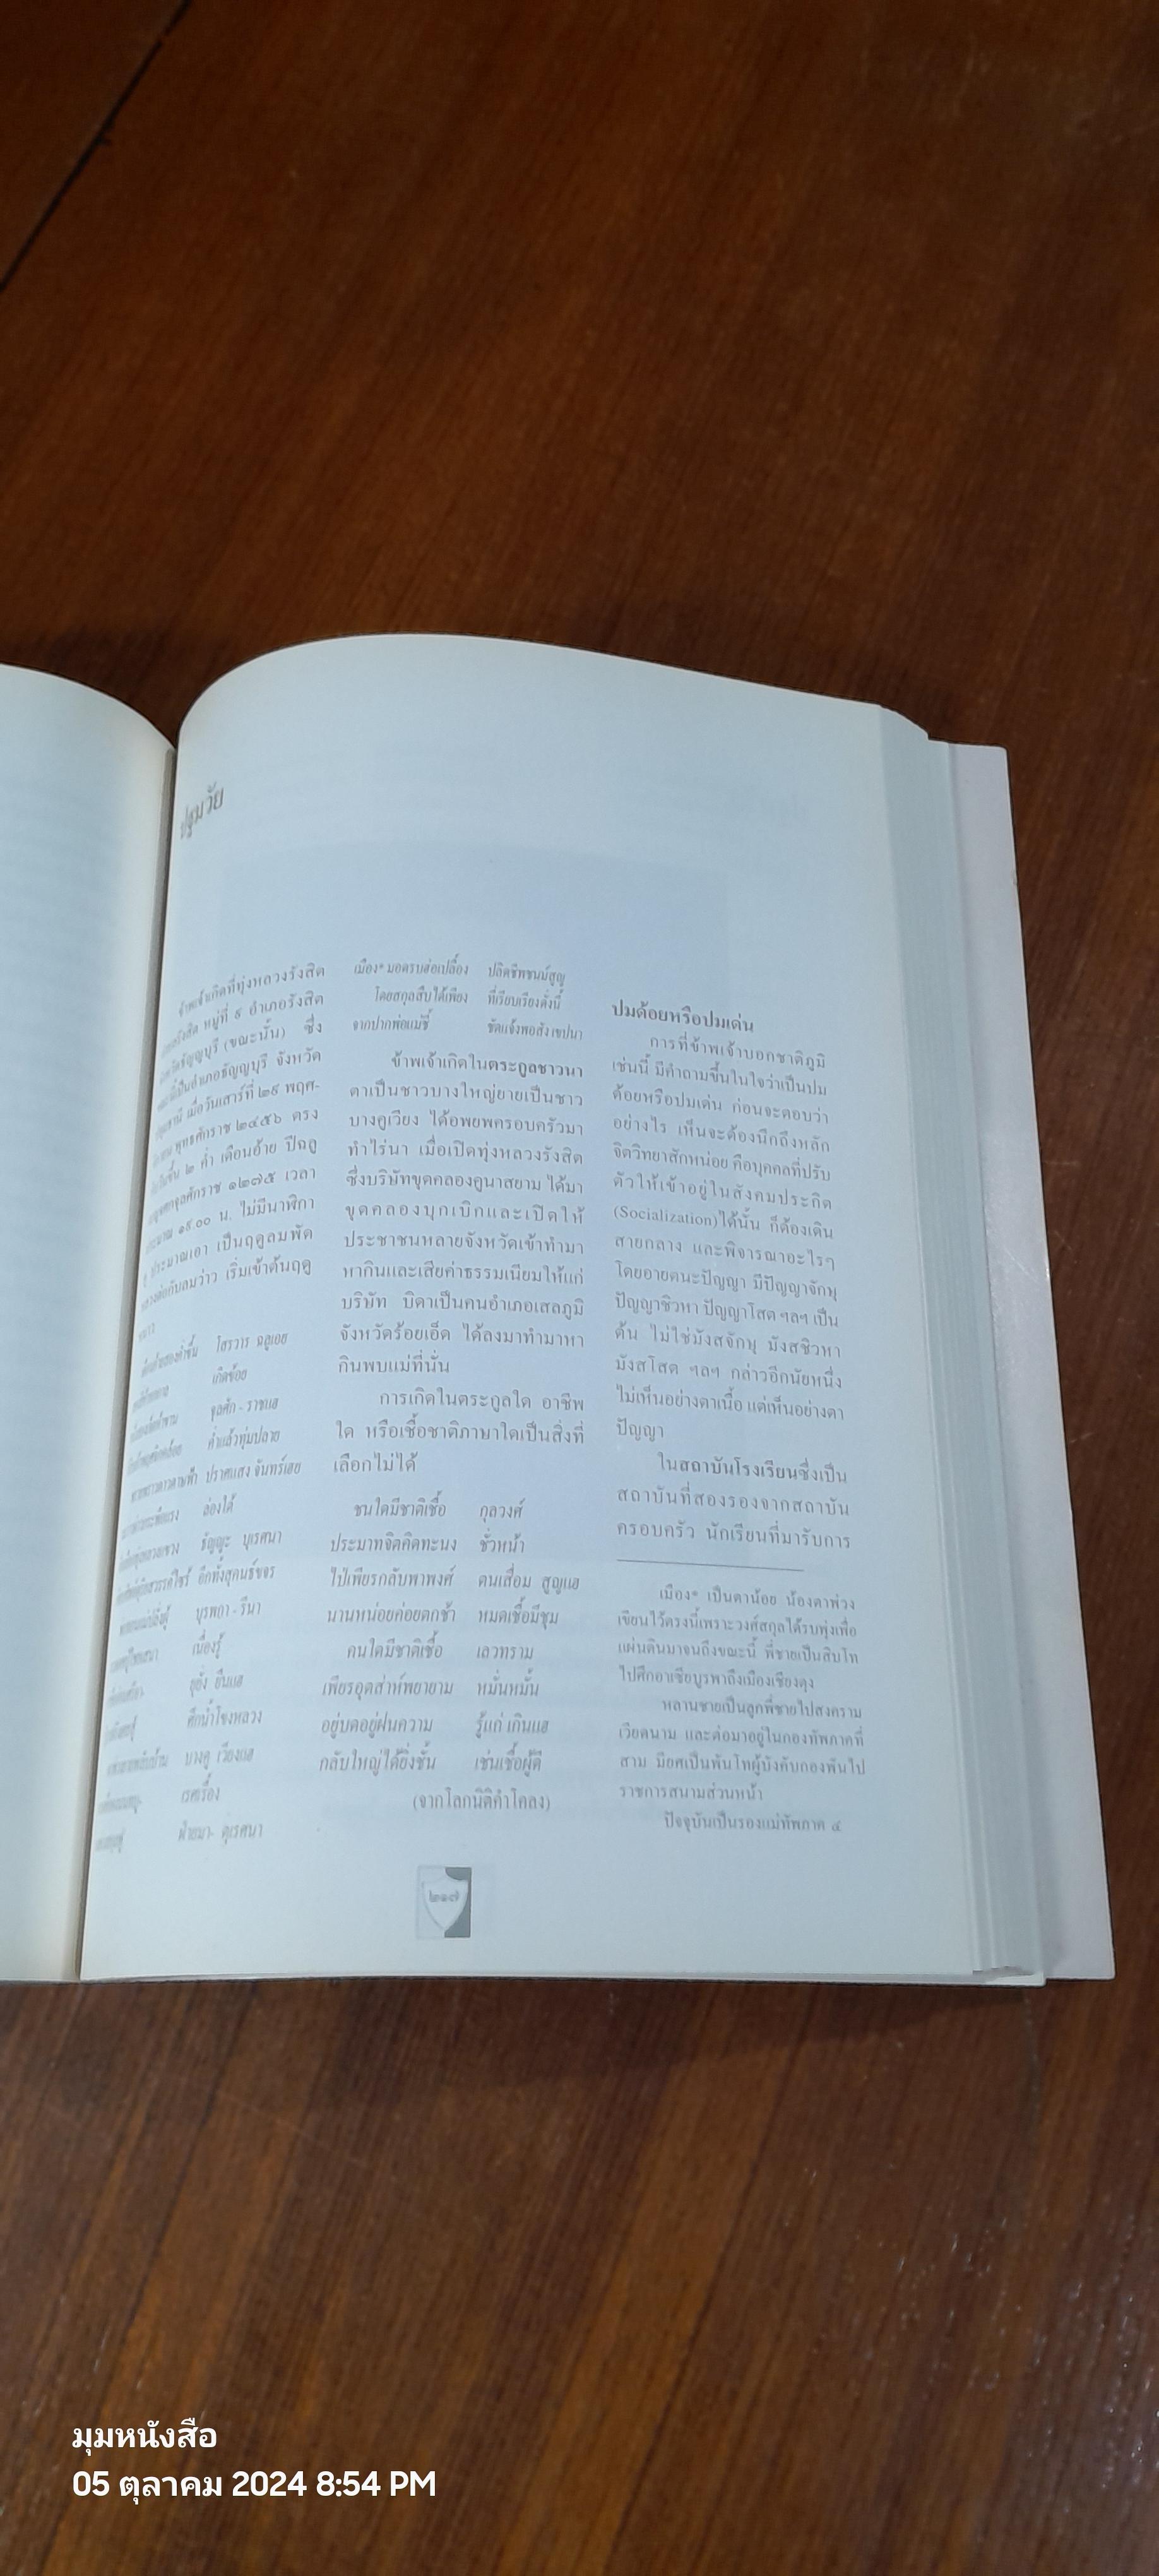 ปฐมวัย
ข้าพเจ้าเกิดที่ทุ่งหลวงรังสิต
หมู่ที่ ๙ อำเภอรังสิต
ธัญญบุรี (ขณะนั้น) ซึ่ง
เป็นอำเภอธัญญบุรี จังหวัด
เมื่อวันเสาร์ที่ ๒๙ พฤศ-
พุทธศักราช ๒๔๕๖ ตรง
ขึ้น ๒ ค่ำ เดือนอ้าย ปีฉลู
จุลศักราช ๑๒๗๕ เวลา
๑๙.๐๐ น. ไม่มีนาฬิกา
ประมาณเอา เป็นฤดูลมพัด
ลมว่าว เริ่มเข้าต้นฤดู
โสรวาร ฉลูเอย
เกิดข้อย
จุลศัก - ราชแฮ
ค่ำแล้วทุ่มปลาย
ปราศแสง จันทร์เฮย
ส่องได้
ธัญญะ บุเรศนา
อีกทั้งสุคนธ์ขจร
บูรพถา - รีนา
เนื่องรู้
ยุยั่ง ยืนแฮ
ศึกน้ำโขงหลวง
บางคู เวียงแฮ
เรศเรื่อง
ฝ่ายมา- ตุเรศนา
เมือง* มอดรบฮ่อเปลื้อง ปลิดชีพชนม์สูญ
โดยสกุลสืบได้เพียง ที่เรียบเรียงดั่งนี้
จากปากพ่อแม่ชี้ ชัดแจ้งพอสัง เขปนา
ข้าพเจ้าเกิดในตระกูลชาวนา
ตาเป็นชาวบางใหญ่ยายเป็นชาว
บางคูเวียง ได้อพยพครอบครัวมา
ทำไร่นา เมื่อเปิดทุ่งหลวงรังสิต
ซึ่งบริษัทขุดคลองคูนาสยาม ได้มา
ขุดคลองบุกเบิกและเปิดให้
ประชาชนหลายจังหวัดเข้าทำมา
หากินและเสียค่าธรรมเนียมให้แก่
บริษัท บิดาเป็นคนอำเภอเสลภูมิ
จังหวัดร้อยเอ็ด ได้ลงมาทำมาหา
กินพบแม่ที่นั่น
การเกิดในตระกูลใด อาชีพ
ใด หรือเชื้อชาติภาษาใดเป็นสิ่งที่
เลือกไม่ได้
ชนใดมีชาติเชื้อ กุลวงศ์
ประมาทจิตคิดทะนง ชั่วหน้า
ไป่เพียรกลับพาพงศ์ ตนเสื่อม สูญแฮ
นานหน่อยค่อยตกช้า หมดเชื้อมีชุม
คนใดมีชาติเชื้อ เลวทราม
เพียรอุตส่าห์พยายาม หมั่นหมั้น
อยู่บดอยู่ฝนความ รู้แก่ เกินแฮ
กลับใหญ่ได้ยิ่งชั้น เช่นเชื้อผู้ดี
(จากโลกนิติคำโคลง)
ปมด้อยหรือปมเด่น
การที่ข้าพเจ้าบอกชาติภูมิ
เช่นนี้ มีคำถามขึ้นในใจว่าเป็นปม
ด้อยหรือปมเด่น ก่อนจะตอบว่า
อย่างไร เห็นจะต้องนึกถึงหลัก
จิตวิทยาสักหน่อย คือบุคคลที่ปรับ
ตัวให้เข้าอยู่ในสังคมประกิต
(Socialization)ได้นั้น ก็ต้องเดิน
สายกลาง และพิจารณาอะไรๆ
โดยอายตนะปัญญา มีปัญญาจักษุ
ปัญญาชิวหา ปัญญาโสต ฯลฯ เป็น
ต้น ไม่ใช่มังสจักษุ มังสชิวหา
มังสโสต ฯลฯ กล่าวอีกนัยหนึ่ง
ไม่เห็นอย่างตาเนื้อ แต่เห็นอย่างตา
ปัญญา
ในสถาบันโรงเรียนซึ่งเป็น
สถาบันที่สองรองจากสถาบัน
ครอบครัว นักเรียนที่มารับการ
เมือง* เป็นตาน้อย น้องตาพ่วง
เขียนไว้ตรงนี้เพราะวงศ์สกุลได้รบพุ่งเพื่อ
แผ่นดินมาจนถึงขณะนี้ พี่ชายเป็นสิบโท
ไปศึกอาเซียบูรพาถึงเมืองเชียงตุง
หลานชายเป็นลูกพี่ชายไปสงคราม
เวียดนาม และต่อมาอยู่ในกองทัพภาคที่
สาม มียศเป็นพันโทผู้บังคับกองพันไป
ราชการสนามส่วนหน้า
ปัจจุบันเป็นรองแม่ทัพภาค ๔
๒๑๗
มุมหนังสือ
05 ตุลาคม 2024 8:54 PM